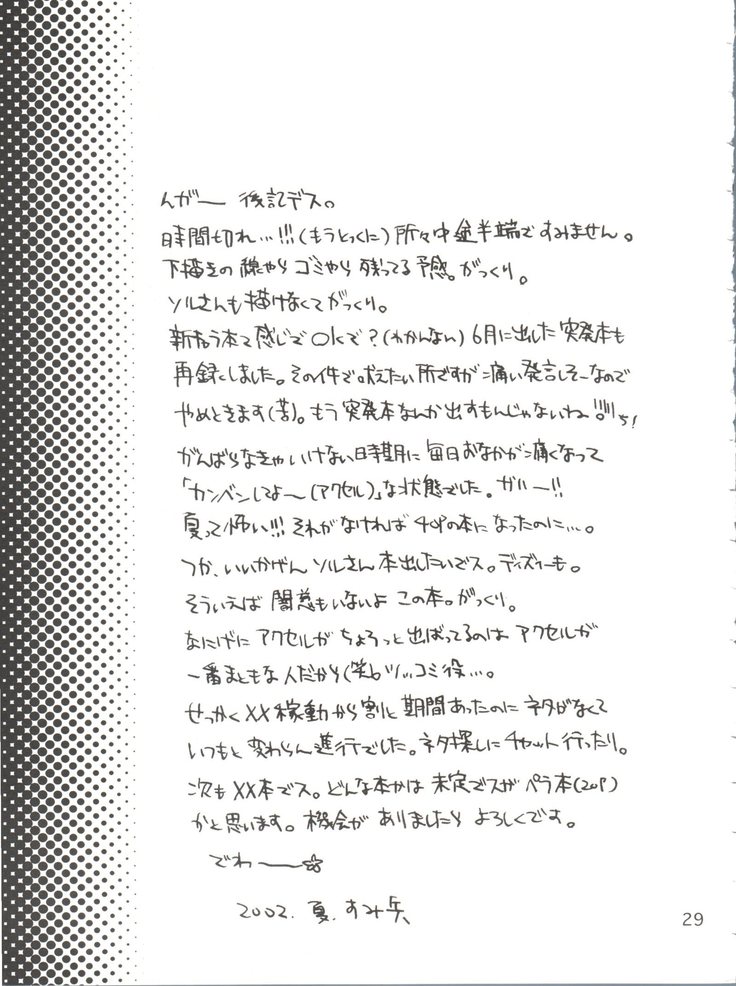 んがー 後記デス。
時間切れ…!!!(もうとっくに)所々中途半端ですみません。
下描きの線やらゴミやら残ってる予感。がっくり。
ソルさんも描けなくてがっくり。
新カプ本て感じでOKで?(わかんない)6月に出した突発本も
再録しました。その件で吠えたい所ですが痛い発言しそーなので
やめときます(苦)。もう突発本なんか出すもんじゃないね!!!ち!
がんばらなきゃいけない時期に毎日おなかが痛くなって
「カンベンしてよ〜(アクセル)」な状態でした。ガハー!!
夏って怖い!!!それがなければ40Pの本になったのに…。
つか、いいかげんソルさん本出したいでス。ディズィーも。
そういえば闇慈もいないよこの本。がっくり。
なにげにアクセルがちょろっと出ばってるのはアクセルが
一番まともな人だから(笑)。ツッコミ役…。
せっかくXX稼動から割と期間あったのにネタがなくて
いつもと変わらん進行でした。ネタ探しにチャット行ったり。
次もXX本でス。どんな本かは未定でスがペラ本(20P)
かと思います。機会がありましたらよろしくです。
でわー☆
2002.夏.すみ兵
29